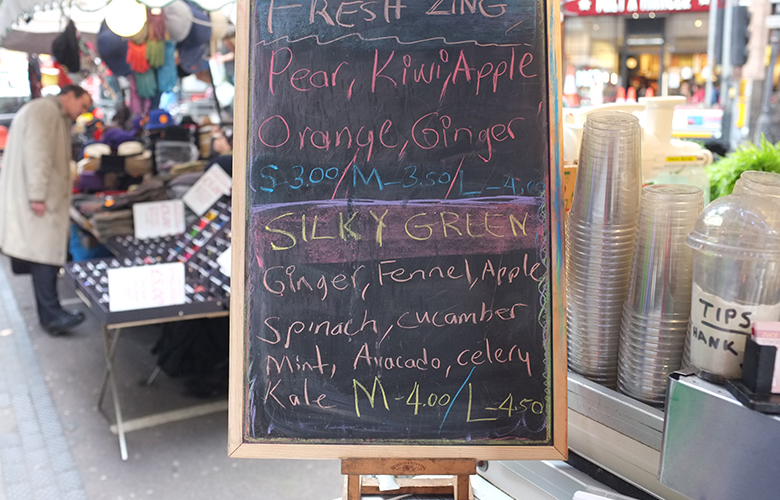 FRESH ZING
Pear, Kiwi, Apple
Orange, Ginger
S-3.00/M-3.50/L-4.00
SILKY GREEN
Ginger, Fennel, Apple
Spinach, cucamber
Mint, Avacado, celery
Kale M-4.00/L-4.50
TIPS
HANK